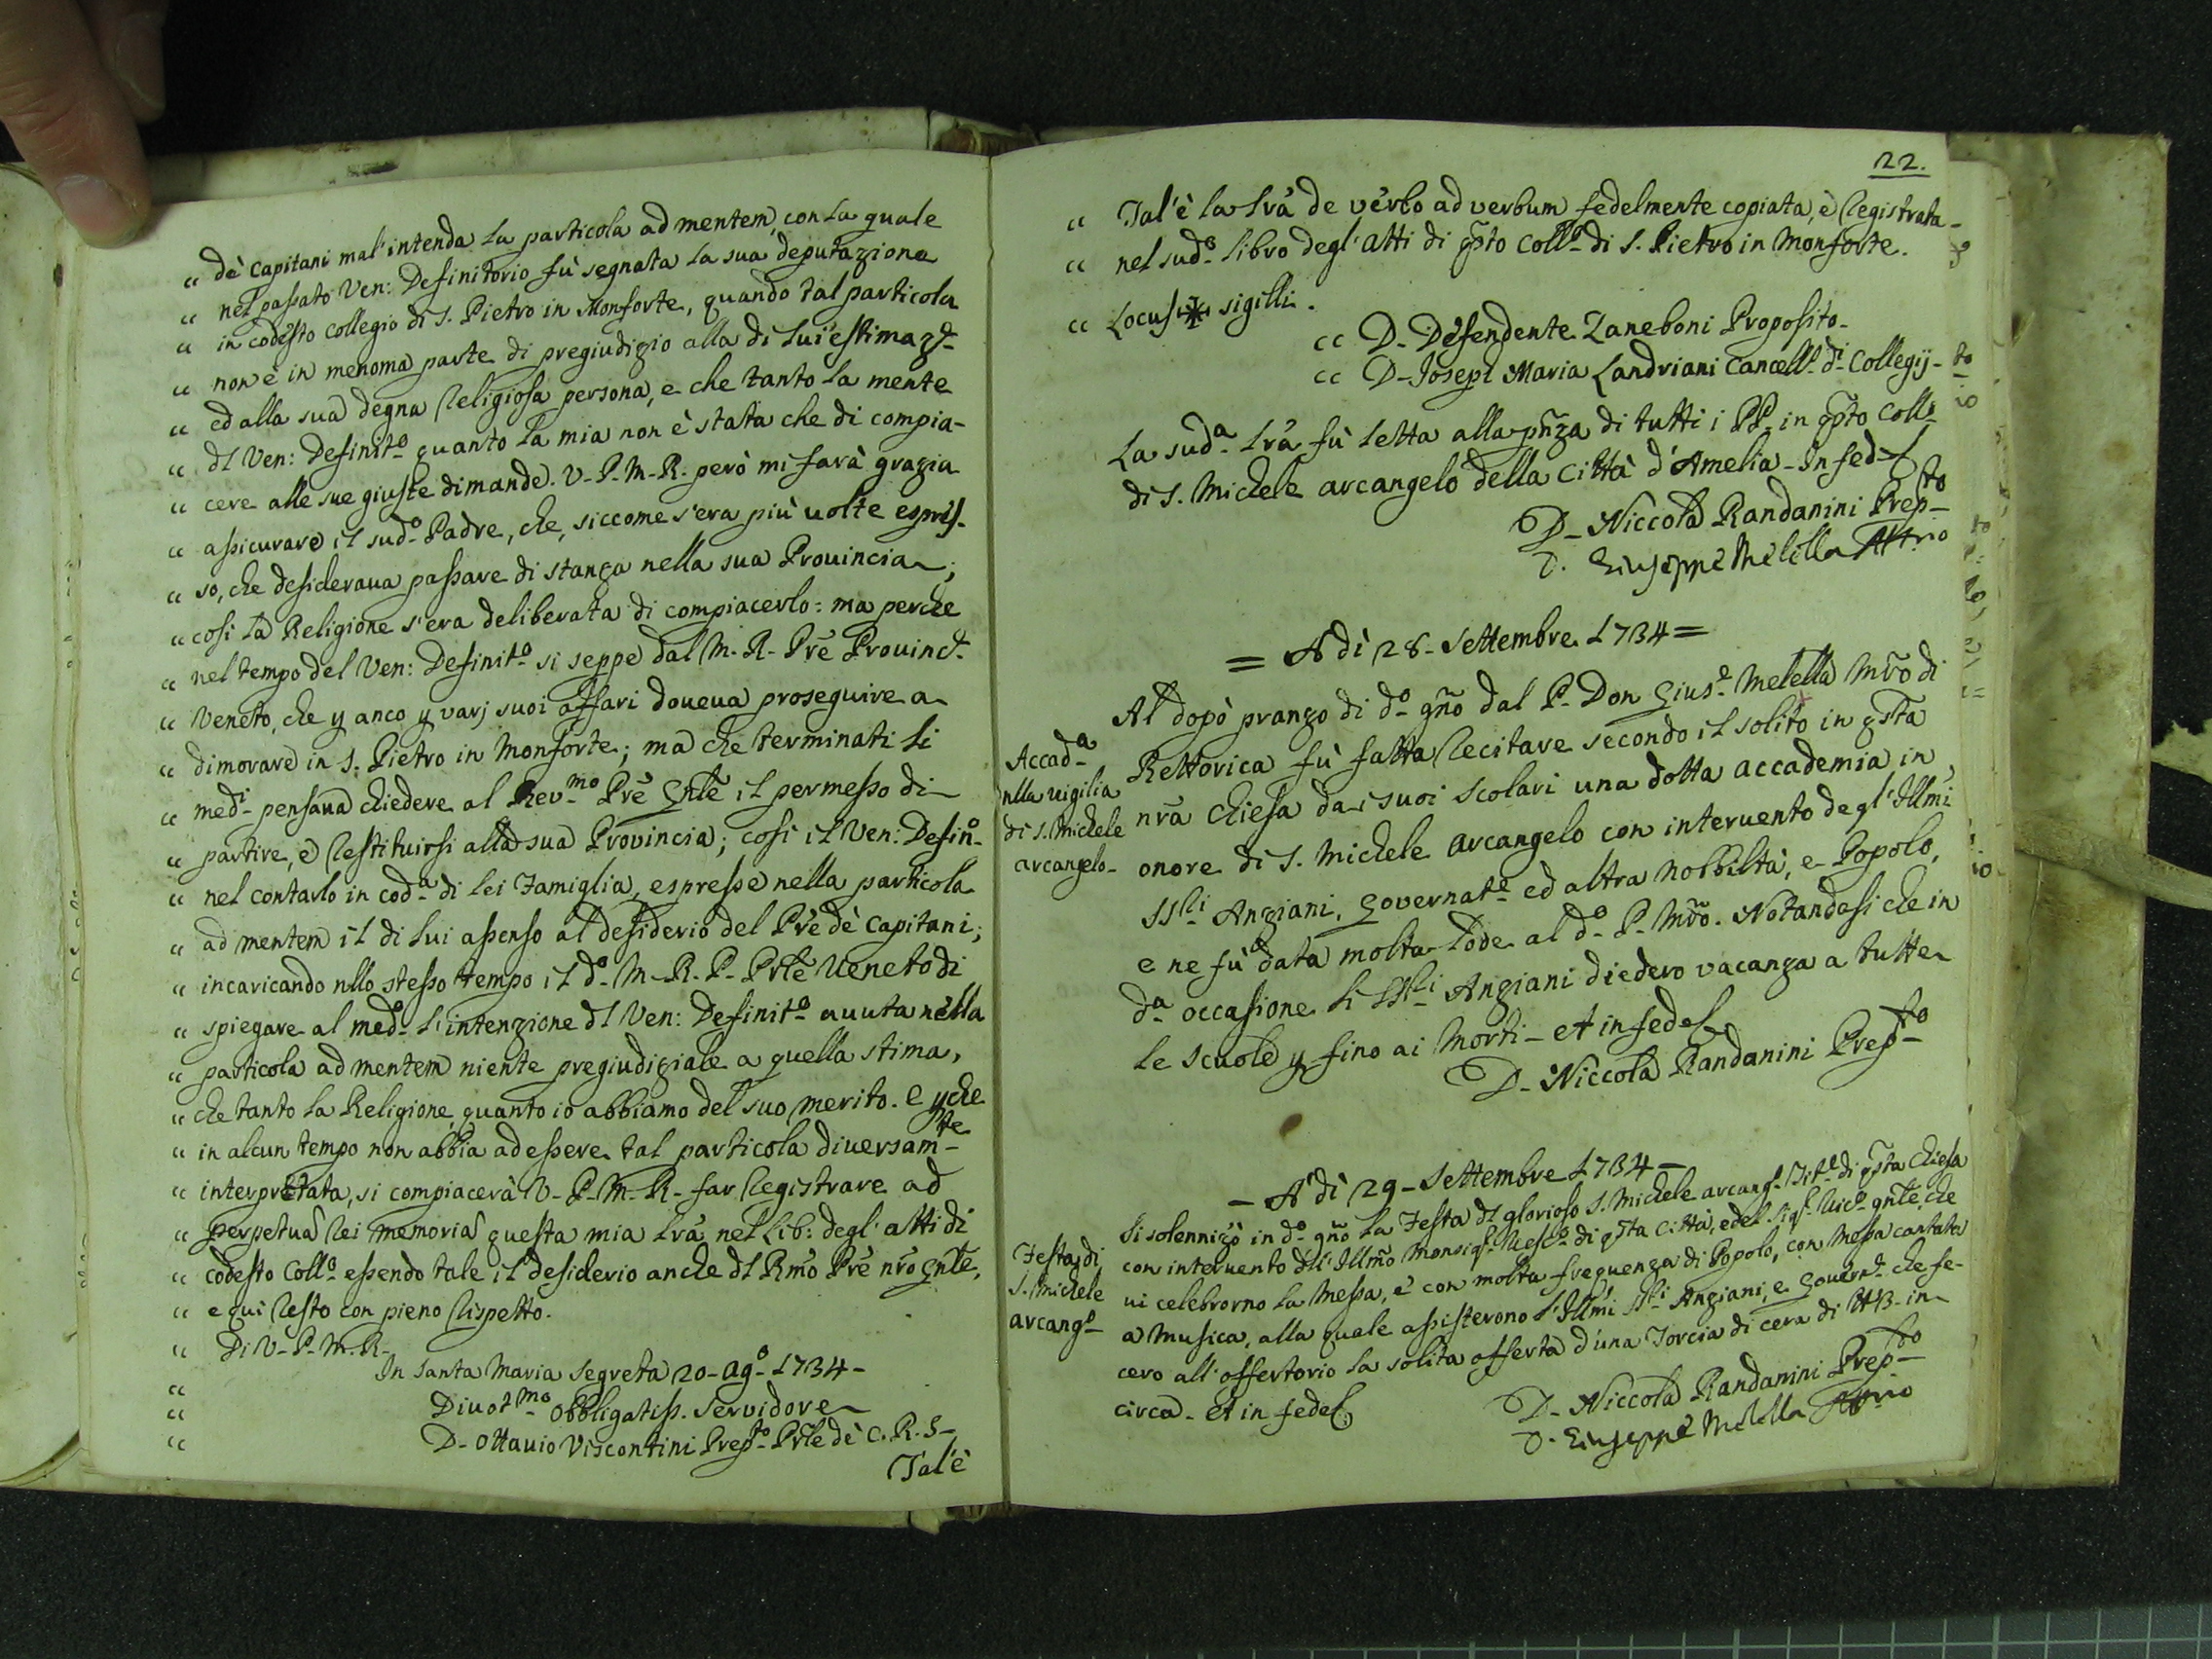 “ dè Capitani mal'intenda la particola ad mentem, con la quale
“ nel passato Ven: Definitorio fù segnata la sua deputazione
“ in codesto collegio di S. Pietro in Monforte, quando tal particola
“ non è in menoma parte di pregiudizio alla di lui estimaz.e
“ ed alla sua degna Religiosa persona, e che tanto la mente
“ dl Ven: Definit.o quanto la mia non è stata che di compia-
“ cere alle sue giuste dimande. V. P. M. R. però mi farà grazia
“ assicurare il sud.o Padre, che, siccome s'era più uolte espres-
“ so, che desideraua passare di stanza nella sua Prouincia;
“ così la Religione s'era deliberata di compiacerlo: ma perche
“ nel tempo del Ven: Definit.o si seppe dal M. R. Prē Prouinc.l
“ Veneto, che p anco p varj suoi affari doueua proseguire a
“ dimorare in S. Pietro in Monforte; ma che terminati li
“ med.i pensaua chiedere al Rev.mo Prē Gnle il permesso di
“ partire, e Restituirsi alla sua Provincia; così il Ven: Defin.o
“ nel contarlo in cod.a di lei Famiglia, espresse nella particola
“ ad mentem il di lui assenso al desiderio del Prē dè Capitani;
“ incaricando nllo stesso tempo il d.o M. R. P. Prle Veneto di
“ spiegare al med.o l'intenzione dl Ven: Definit.o auuta nella
“ particola ad mentem niente pregiudiziale a quella stima,
“ che tanto la Religione, quanto io abbiamo del suo merito. E pche
“ in alcun tempo non abbia ad essere tal particola diuersam.te
“ interpretata, si compiacerà V. P. M. R. far Registrare ad
“ perpetua Rei memoria questa mia lrā nel Lib: degl'atti di
“ codesto Coll.o essendo tale il desiderio anche dl Rmo Prē nrō Gnle,
“ e qui Resto con pieno Rispetto.
“ Di V. P. M. R.
“ In Santa Maria Segreta 20. Ag.o 1734.
“ Diuot.mo Obbligatiss. Servidore
“ D. Ottauio Viscontini Prep.to Prle dè C. R. S.
Tal'è
22.
“ Tal'è la lrā de verbo ad verbum fedelmente copiata, è Registrata
“ nel sud.o libro degl'atti di qsto Coll.o di S. Pietro in Monforte.
“ Locus * sigilli.
“ D. Defendente Zaneboni Proposito
“ D. Joseph Maria Landriani Cancell.s d.i Collegij
La sud.a lrā fù letta alla pnza di tutti i PP. in qsto Coll.o
di S. Michele arcangelo della Città d'Amelia. In fede
D. Niccola Randanini Prep.to
D. Giuseppe Melella Att.rio
= A dì 28. Settembre 1734 =
Accad.a
nlla uigilia
di S. Michele
arcangelo
Al dopò pranzo di d.o gno dal P. Don Gius.e Melella Mrō di
Rettorica fù fatta Recitare secondo il solito in qsta
nrā Chiesa da i suoi Scolari una dotta accademia in
onore di S. Michele Arcangelo con interuento degl'Illmi
SS.ri Anziani, Governat.e ed altra nobbiltà, e Popolo,
e ne fù data molta lode al d.o P. Mrō. Notandosi che in
d.a occasione li SS.ri Anziani diedero vacanza a tutte
le scuole p fino ai Morti. et in fede
D. Niccola Randanini Prep.to
- A dì 29. Settembre 1734 -
Festa di
S. Michele
arcang.o
Si solennizò in d.o gno la Festa dl glorioso S. Michele arcang.o Tit.e di qsta Chiesa
con interuento dll'Illmo Monsig.r Vesc.o di qsta Città, e del Sig.r Vic.o gnle, che
ui celebrorno la Messa, e con molta frequenza di Popolo, con Messa cantata
a Musica, alla quale assisterono l'Illmi SS.ri Anziani, e Gouern.e che fe-
cero all'offertorio la solita offerta d'una Torcia di cera di in
circa. et in fede
D. Niccola Randanini Prep.to
D. Giuseppe Melella Att.rio